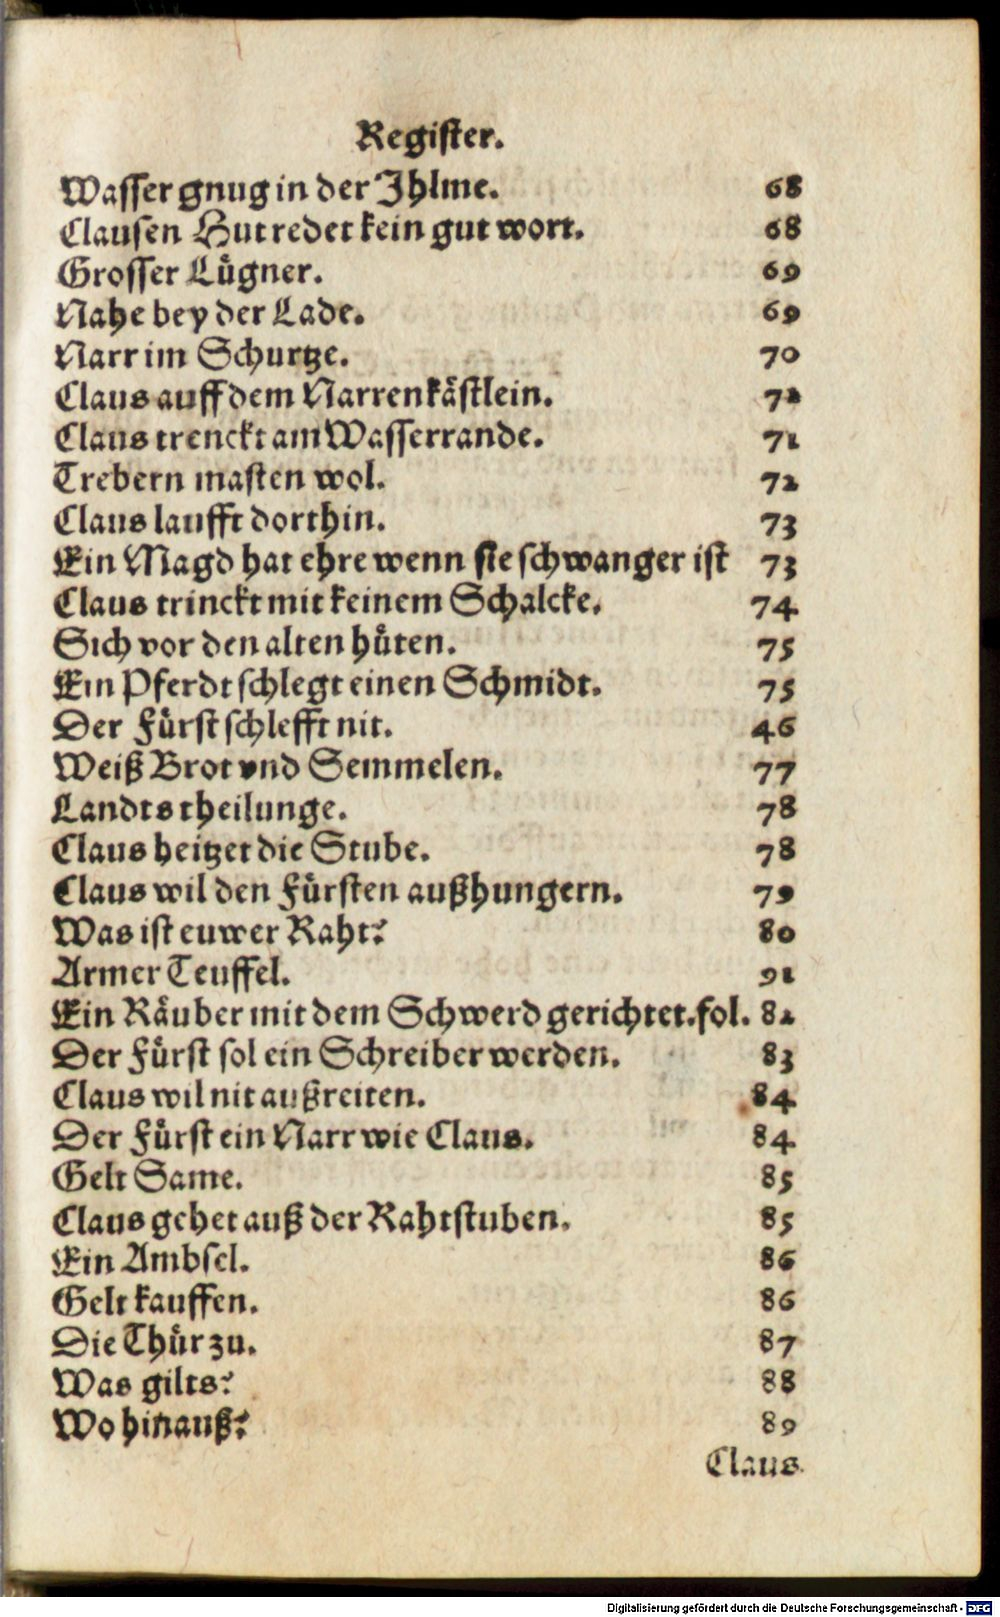 Register.
Wasser gnug in der Ihlme. 68
Clausen Hut redet kein gut wort. 68
Grosser Lügner. 69
Nahe bey der Lade. 69
Narr im Schurtze. 70
Claus auff dem Narrenkästlein. 72
Claus trenckt am Wasserrande. 71
Trebern masten wol. 72
Claus laufft dorthin. 73
Ein Magd hat ehre wenn sie schwanger ist 73
Claus trinckt mit keinem Schalcke. 74
Sich vor den alten hüten. 75
Ein Pferdt schlegt einen Schmidt. 75
Der Fürst schlefft nit. 46
Weiß Brot vnd Semmelen. 77
Landts theilunge. 78
Claus heitzet die Stube. 78
Claus wil den Fürsten außhungern. 79
Was ist euwer Raht? 80
Armer Teuffel. 91
Ein Räuber mit dem Schwerd gerichtet. fol. 82
Der Fürst sol ein Schreiber werden. 83
Claus wil nit außreiten. 84
Der Fürst ein Narr wie Claus. 84
Gelt Same. 85
Claus gehet auß der Rahtstuben. 85
Ein Ambsel. 86
Gelt kauffen. 86
Die Thür zu. 87
Was gilts? 88
Wo hinauß? 89
Claus
Digitalisierung gefördert durch die Deutsche Forschungsgemeinschaft - DFG